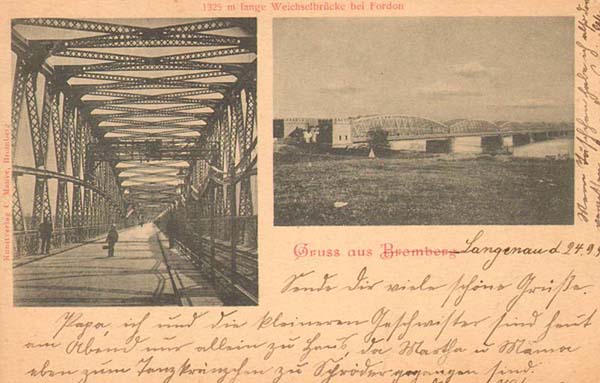 1325 m lange Weichselbrücke bei Fordon
Kunstverlag C. Mauve, Bromberg
Gruss aus Bromberg Langenau d 24.9.
Sende Dir viele schöne Grüße.
Papa, ich und die kleineren Geschwister sind heut
am Abend nur allein zu Haus, da Martha u Mama
eben zum Tanzkränzchen zu Schröder gegangen sind.